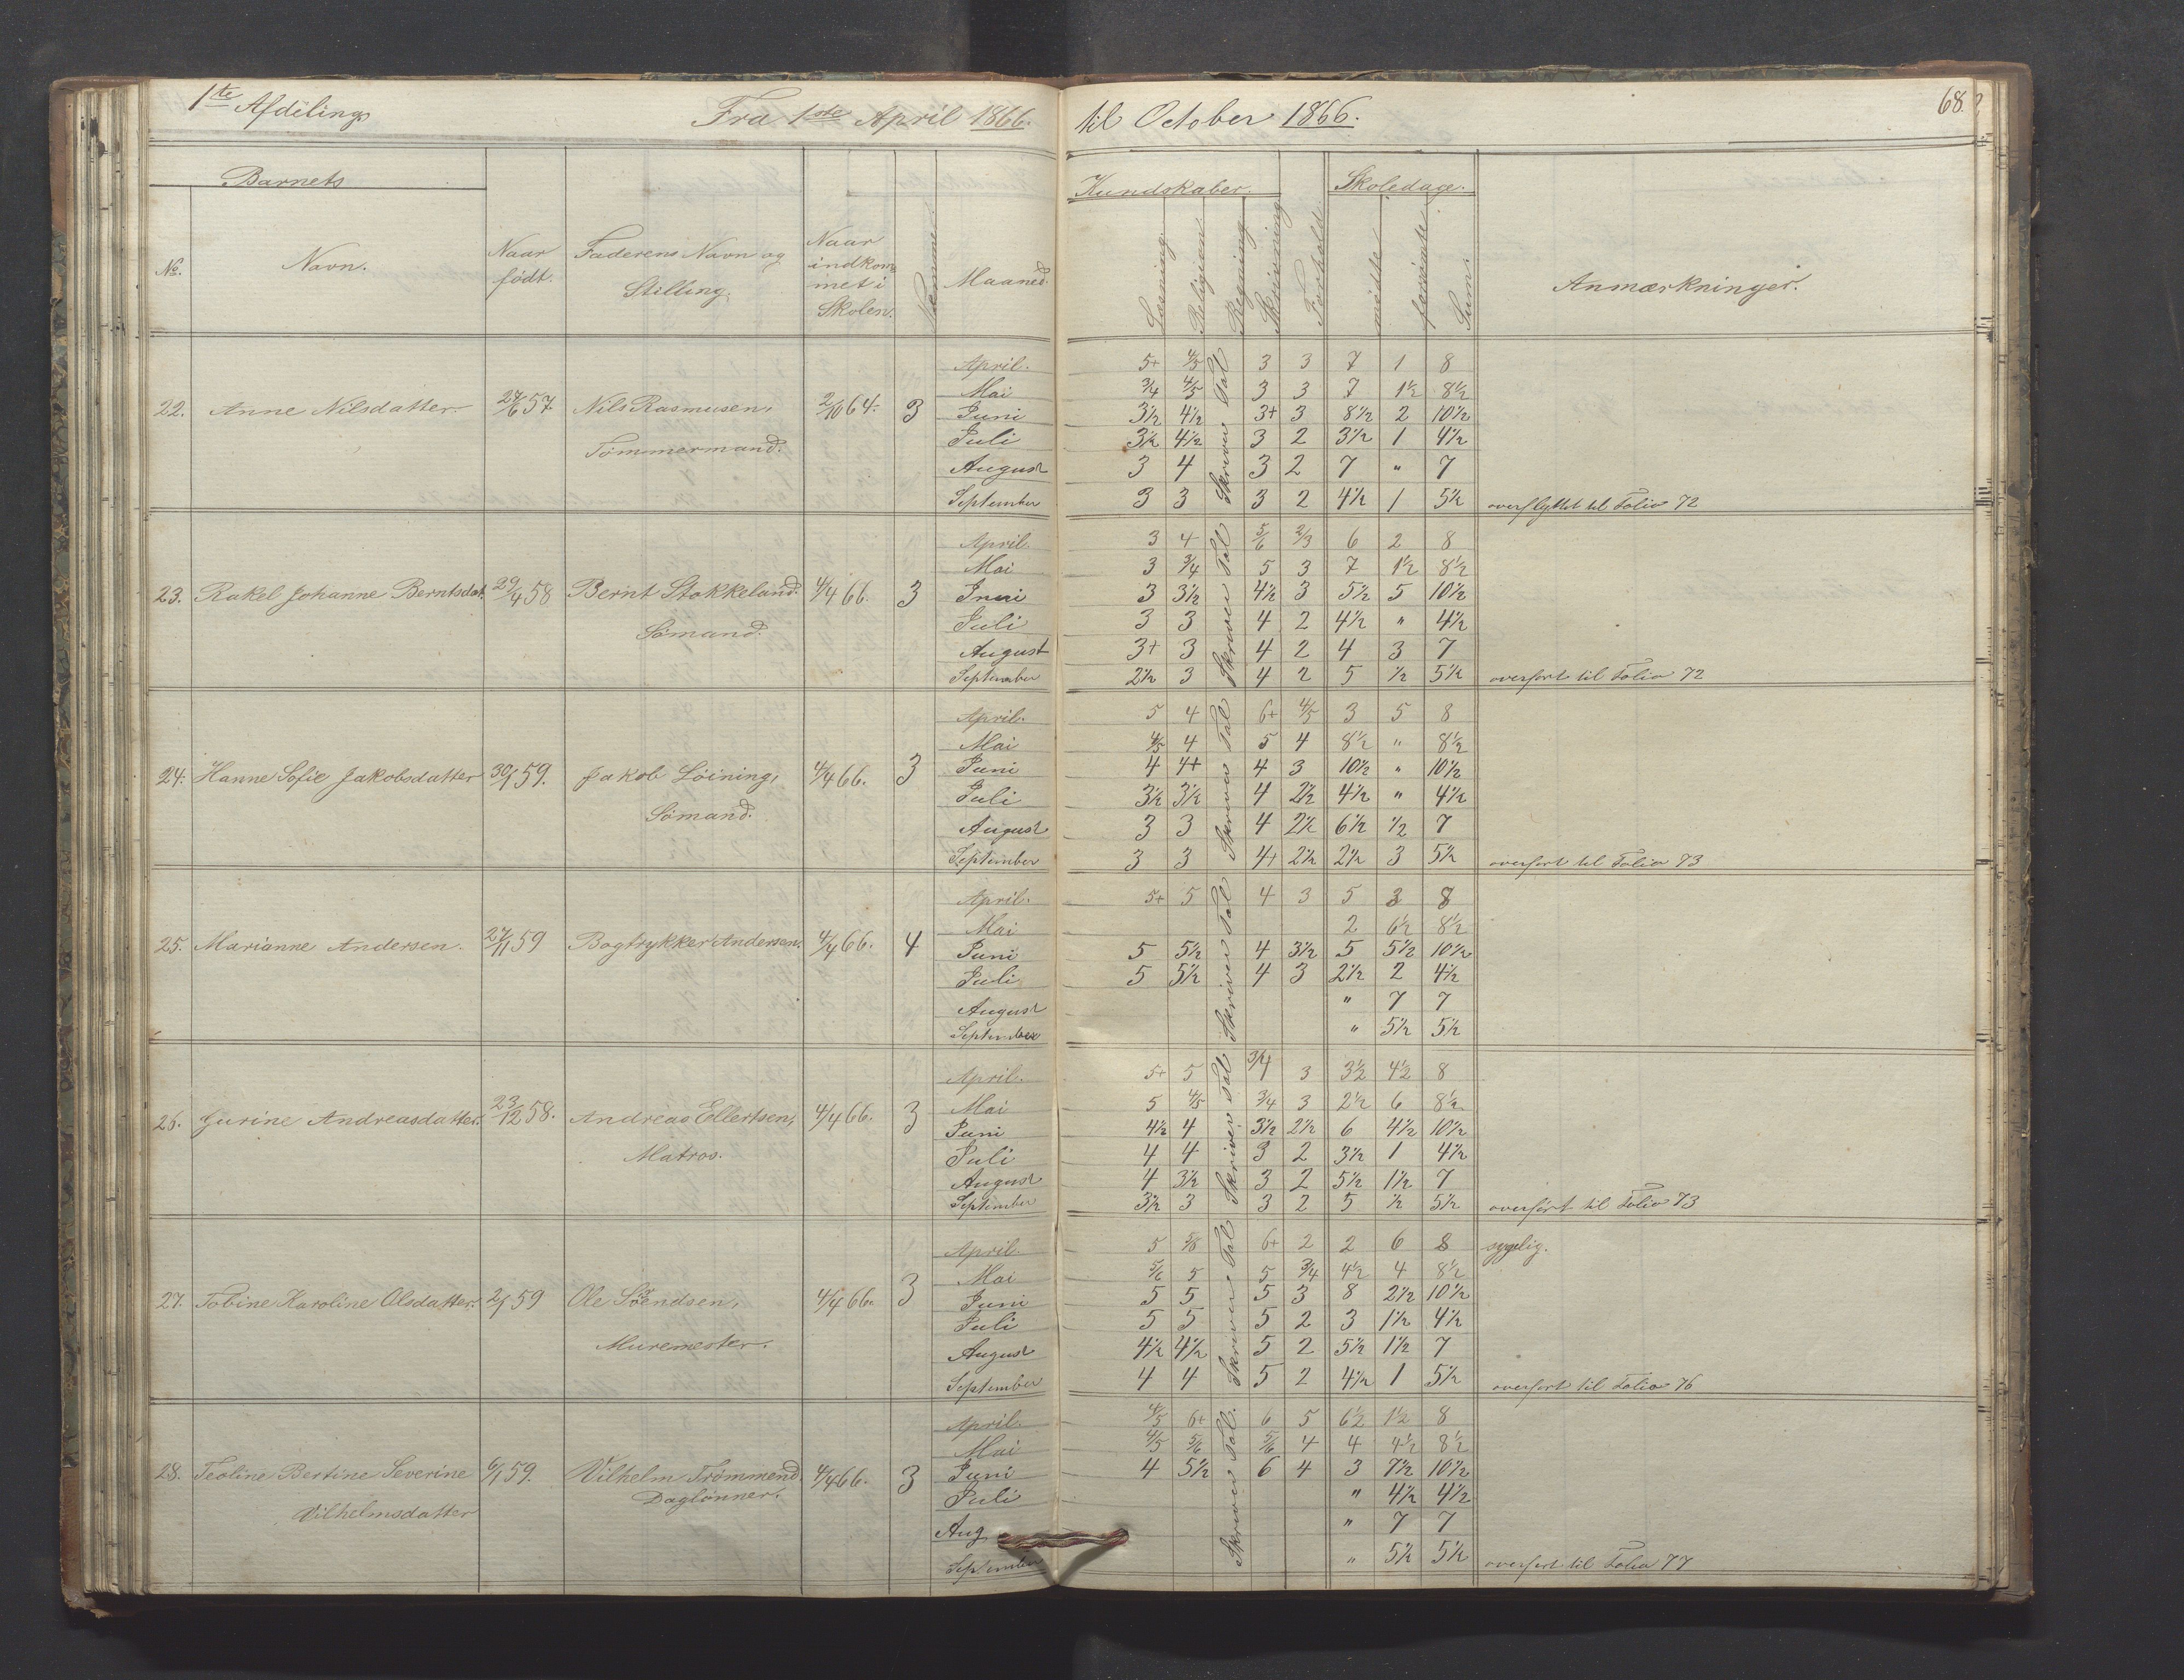 1te Afdeling
Fra 1ste April 1866. til October 1866.
68.
Barnets
Kundskaber. Skoledage.
No. Navn. Naar født. Faderens Navn og Stilling. Naar indkommet i Skolen. Nemme. Maaned. Læsning. Religion. Regning. Skrivning. Forhold. mødte. forsømte. Sum. Anmærkninger.
April. 5+ 4/5 3 3 7 1 8
Mai 3/4 4/5 3 3 7 1½ 8½
22. Anne Nilsdatter. 27/6 57. Nils Rasmusen, 2/10 64. 3 Juni 3½ 4½ Skriver Tal 3+ 3 8½ 2 10½
Tømmermand. Juli 3½ 4½ 3 2 3½ 1 4½
August 3 4 3 2 7 " 7
September 3 3 3 2 4½ 1 5½ overflyttet til Folio 72
April. 3 4 5/6 2/3 6 2 8
Mai 3 3/4 5 3 7 1½ 8½
23. Rakel Johanne Berntsdat. 29/4 58 Bernt Stokkeland. 4/4 66. 3 Juni 3 3½ Skriver Tal 4½ 3 5½ 5 10½
Sømand. Juli 3 3 4 2 4½ " 4½
August 3+ 3 4 2 4 3 7
September 2½ 3 4 2 5 ½ 5½ overført til Folio 72
April. 5 4 6+ 4/5 3 5 8
Mai 4/5 4 5 4 8½ " 8½
24. Hanne Sofie Jakobsdatter 30/1 59. Jakob Löining, 4/4 66. 3 Juni 4 4+ Skriver Tal 4 3 10½ " 10½
Sömand. Juli 3½ 3½ 4 2½ 4½ " 4½
August 3 3 4 2½ 6½ ½ 7
September 3 3 4+ 2½ 2½ 3 5½ overført til Folio 73
April. 5+ 5 4 3 5 3 8
Mai 2 6½ 8½
25. Marianne Andersen. 27/11 59 Bogtrykker Andersen. 4/4 66. 4 Juni 5 5½ Skriver Tal 4 3½ 5 5½ 10½
Juli 5 5½ 4 3 2½ 2 4½
August " 7 7
September " 5½ 5½
April. 5+ 5 3/4 3 3½ 4½ 8
Mai 5 4/5 3/4 3 2½ 6 8½
26. Gurine Andreasdatter. 23/12 58. Andreas Ellertsen, 4/4 66. 3 Juni 4½ 4 Skriver Tal 3½ 2½ 6 4½ 10½
Matros. Juli 4 4 3 2 3½ 1 4½
August 4 3½ 3 2 5½ 1½ 7
September 3½ 3 3 2 5 ½ 5½ overført til Folio 73
April. 5 5/6 6+ 2 2 6 8 sygelig.
Mai 5/6 5 5 3/4 4½ 4 8½
27. Tobine Karoline Olsdatter. 2/1 59 Ole Söendsen, 4/4 66. 3 Juni 5 5 Skriver Tal 5 3 8 2½ 10½
Juli 5 5 5 2 3 1½ 4½
Muremester. August 4½ 4½ 5 2 5½ 1½ 7
September 4 4 5 2 4½ 1 5½ overført til Folio 76
April. 4/5 6+ 6 5 6½ 1½ 8
Mai 4/5 5/6 5/6 4 4 4½ 8½
28. Teoline Bertine Severine 6/1 59. Vilhelm Trömmend. 4/4 66. 3 Juni 4 5½ Skriver Tal. 6 4 3 7½ 10½
Vilhelmsdatter Daglönner. Juli " 4½ 4½
Aug " 7 7
September " 5½ 5½ overført til Folio 77